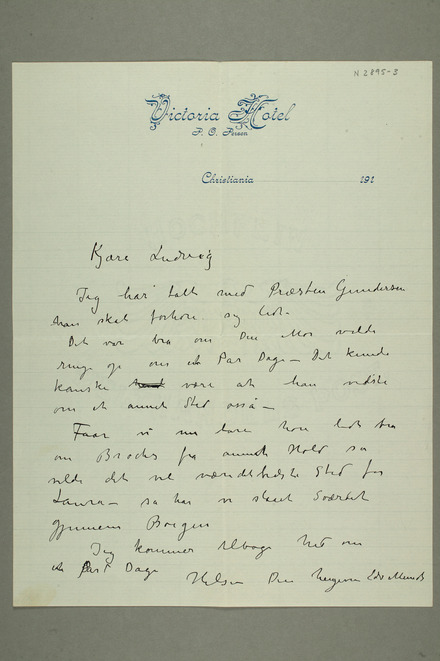 N 2895-3
Victoria Hotel
P. O. Person
Christiania 191
Kjære Ludvig
Jeg har talt med Præsten Gundersen
han skal forhøre sig lidt.
Det var bra om Din Mor vilde
ringe op om et Par Dage – Det kunde
kanske være at han vidste
om et annet Sted også –
Faar vi nu bare høre lidt bra
om fra annet Hold så
vilde det vel være det bedste Sted for
Laura – så har vi slaaet Sværdet
gjennem Borgen
Jeg kommer tilbage hid om
et Par Dage
Hilsen Din hengivne Edv Munch